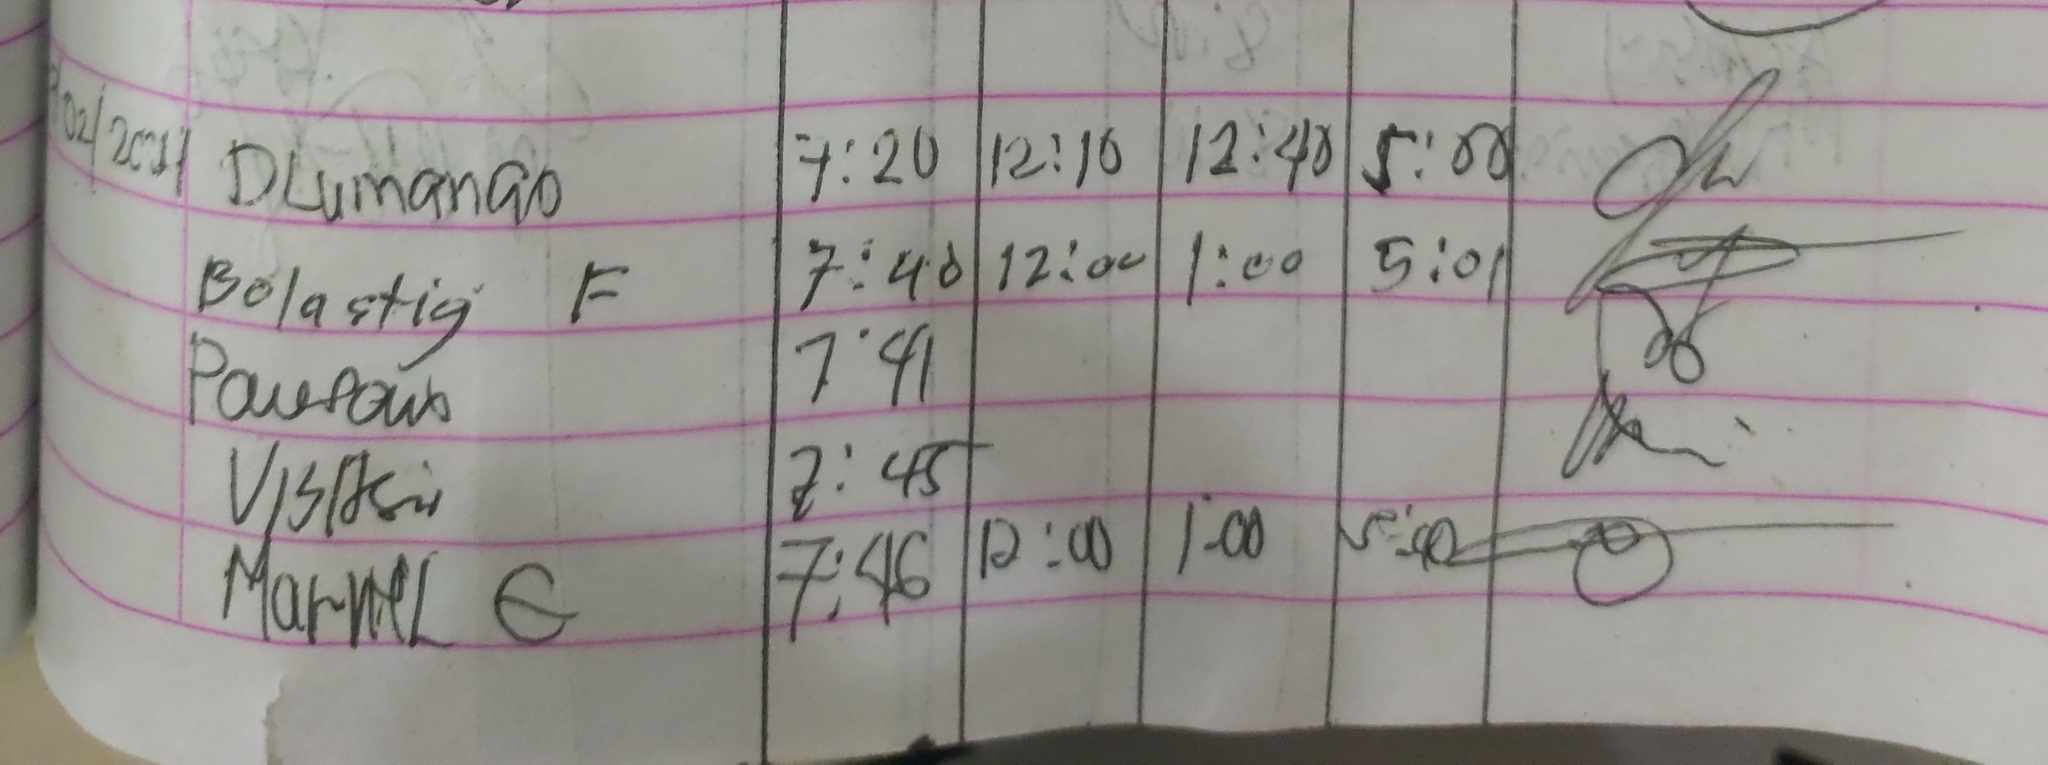 02/2021 DLumanao 7:20 12:10 12:40 5:00
Bolastig F 7:40 12:00 1:00 5:01
7:41
7:45
Marvel E 7:46 12:00 1:00 5:00